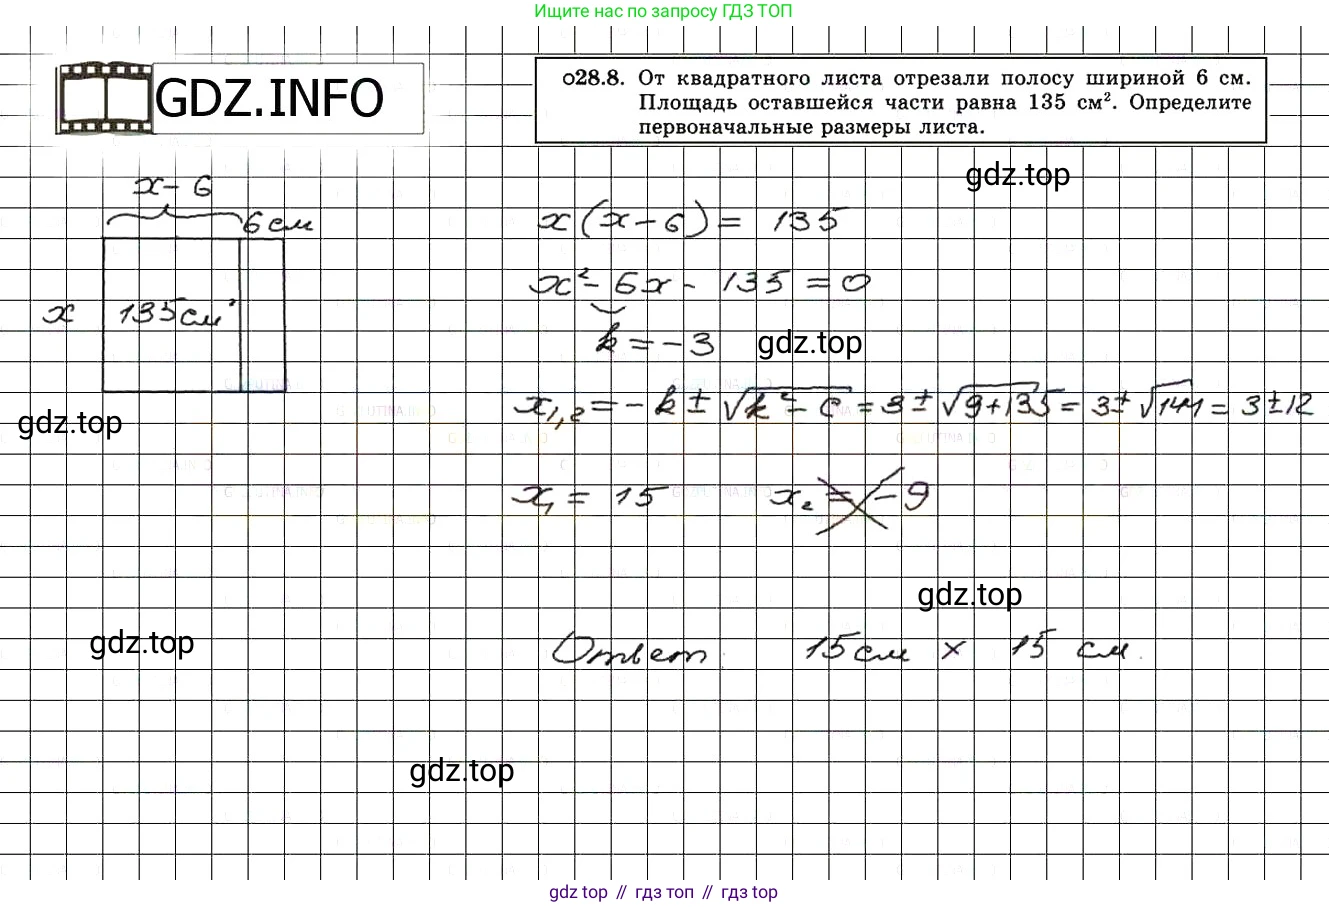 Ищите нас по запросу ГДЗ ТОП
GDZ.INFO
о28.8. От квадратного листа отрезали полосу шириной 6 см.
Площадь оставшейся части равна 135 см². Определите
первоначальные размеры листа.
gdz.top
x - 6
6 см
x(x - 6) = 135
x² - 6x - 135 = 0
x
135 см²
k = -3
gdz.top
x₁,₂ = -k ± √k² - c = 3 ± √9+135 = 3 ± √144 = 3 ± 12
gdz.top
x₁ = 15 x₂ = -9
gdz.top
gdz.top
Ответ: 15 см × 15 см.
gdz.top
gdz top // гдз топ // гдз top